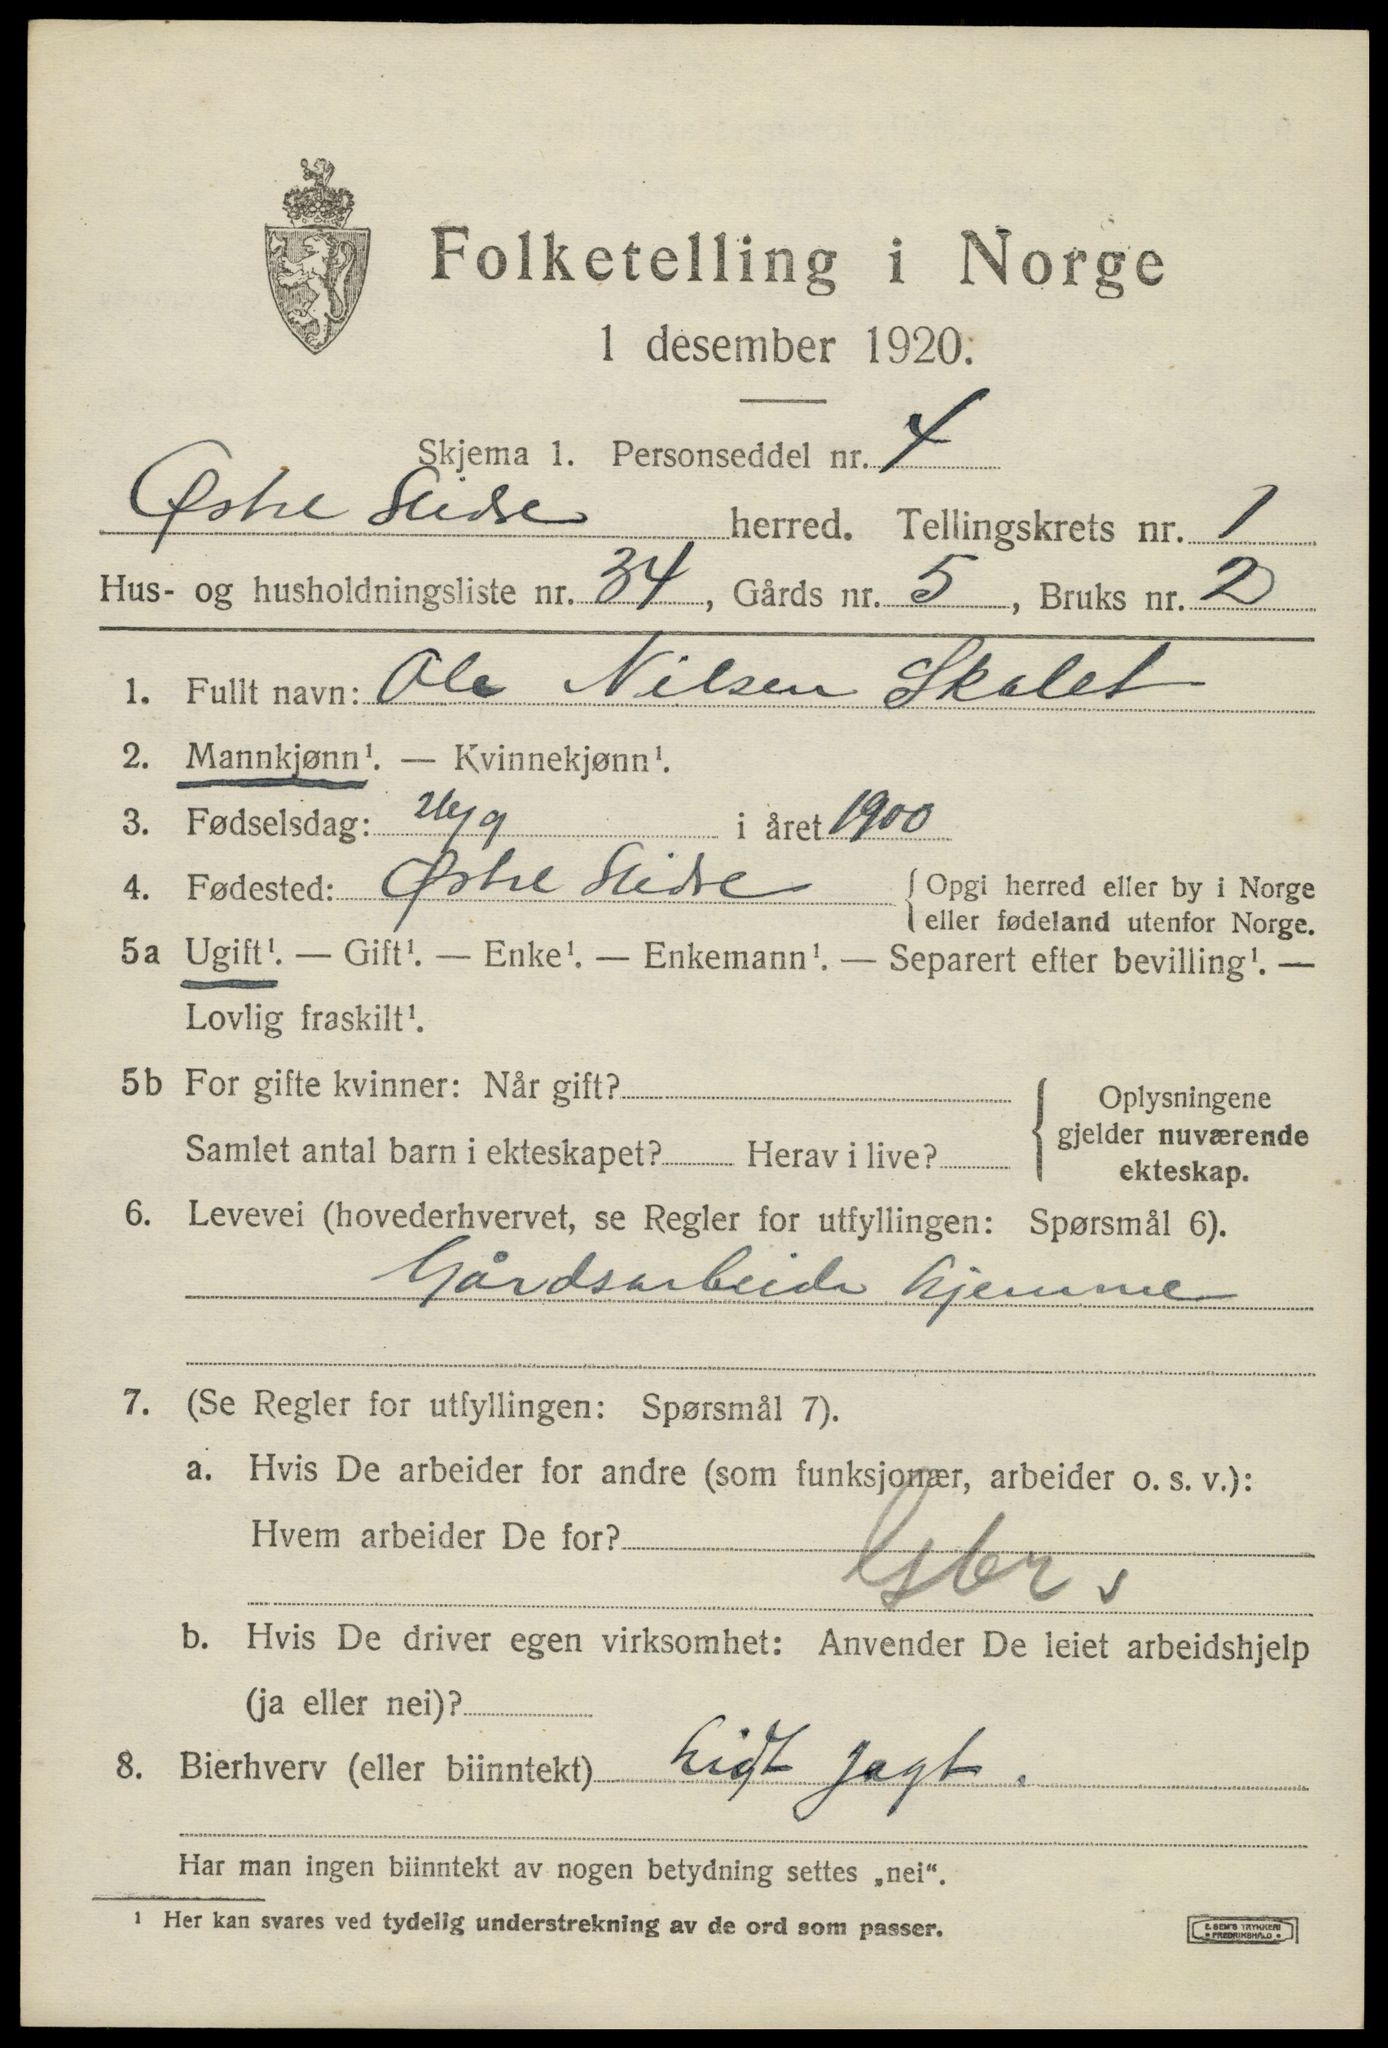 Folketelling i Norge
1 desember 1920.
Skjema 1. Personseddel nr. 4
Østre Slidre herred. Tellingskrets nr. 1
Hus- og husholdningsliste nr. 34, Gårds nr. 5, Bruks nr. 2
1. Fullt navn: Ole Nilsen Skolet
2. Mannkjønn¹. — Kvinnekjønn¹.
3. Fødselsdag: 26/9 i året 1900
4. Fødested: Østre Slidre {Opgi herred eller by i Norge
eller fødeland utenfor Norge.
5a Ugift¹. — Gift¹. — Enke¹. — Enkemann¹. — Separert efter bevilling¹. —
Lovlig fraskilt¹.
5b For gifte kvinner: Når gift?
Samlet antal barn i ekteskapet? Herav i live?
Oplysningene
gjelder nuværende
ekteskap.
6. Levevei (hovederhvervet, se Regler for utfyllingen: Spørsmål 6).
Gårdsarbeide hjemme
7. (Se Regler for utfyllingen: Spørsmål 7).
a. Hvis De arbeider for andre (som funksjonær, arbeider o. s. v.):
Hvem arbeider De for?
Gbrs
b. Hvis De driver egen virksomhet: Anvender De leiet arbeidshjelp
(ja eller nei)?
8. Bierhverv (eller biinntekt) Lidt jagt.
Har man ingen biinntekt av nogen betydning settes „nei“.
¹ Her kan svares ved tydelig understrekning av de ord som passer.
E. SEM'S TRYKKERI
FREDRIKSHALD